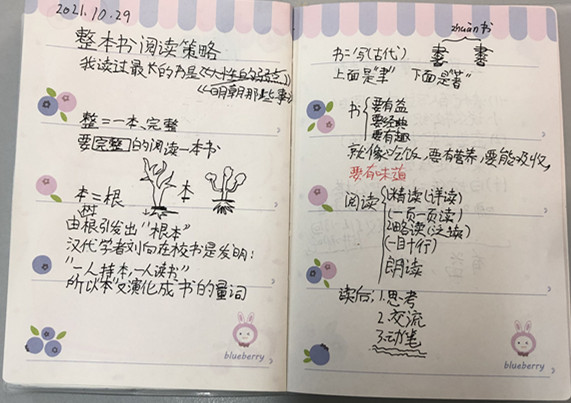 2021.10.29
整本书阅读策略
我读过最长的书是《人性的弱点》
《明朝那些事》
整=一本、完整
要完整的阅读一本书
本=根 本
树
由根引发出"根本"
汉代学者刘向在校书是发明:
"一人持本,一人读书"
所以"本"又演化成"书"的量词
blueberry
zhuàn书
书=写(古代) 書 書
上面是"聿" 下面是"者"
书 要有益
要经典
要有趣
就像吃饭,要有营养,要能吸收,
要有味道
阅读 1精读(详读)
(一页一页读)
2略读(泛读)
(一目十行)
朗读
读后:1.思考
2.交流
3.动笔
blueberry